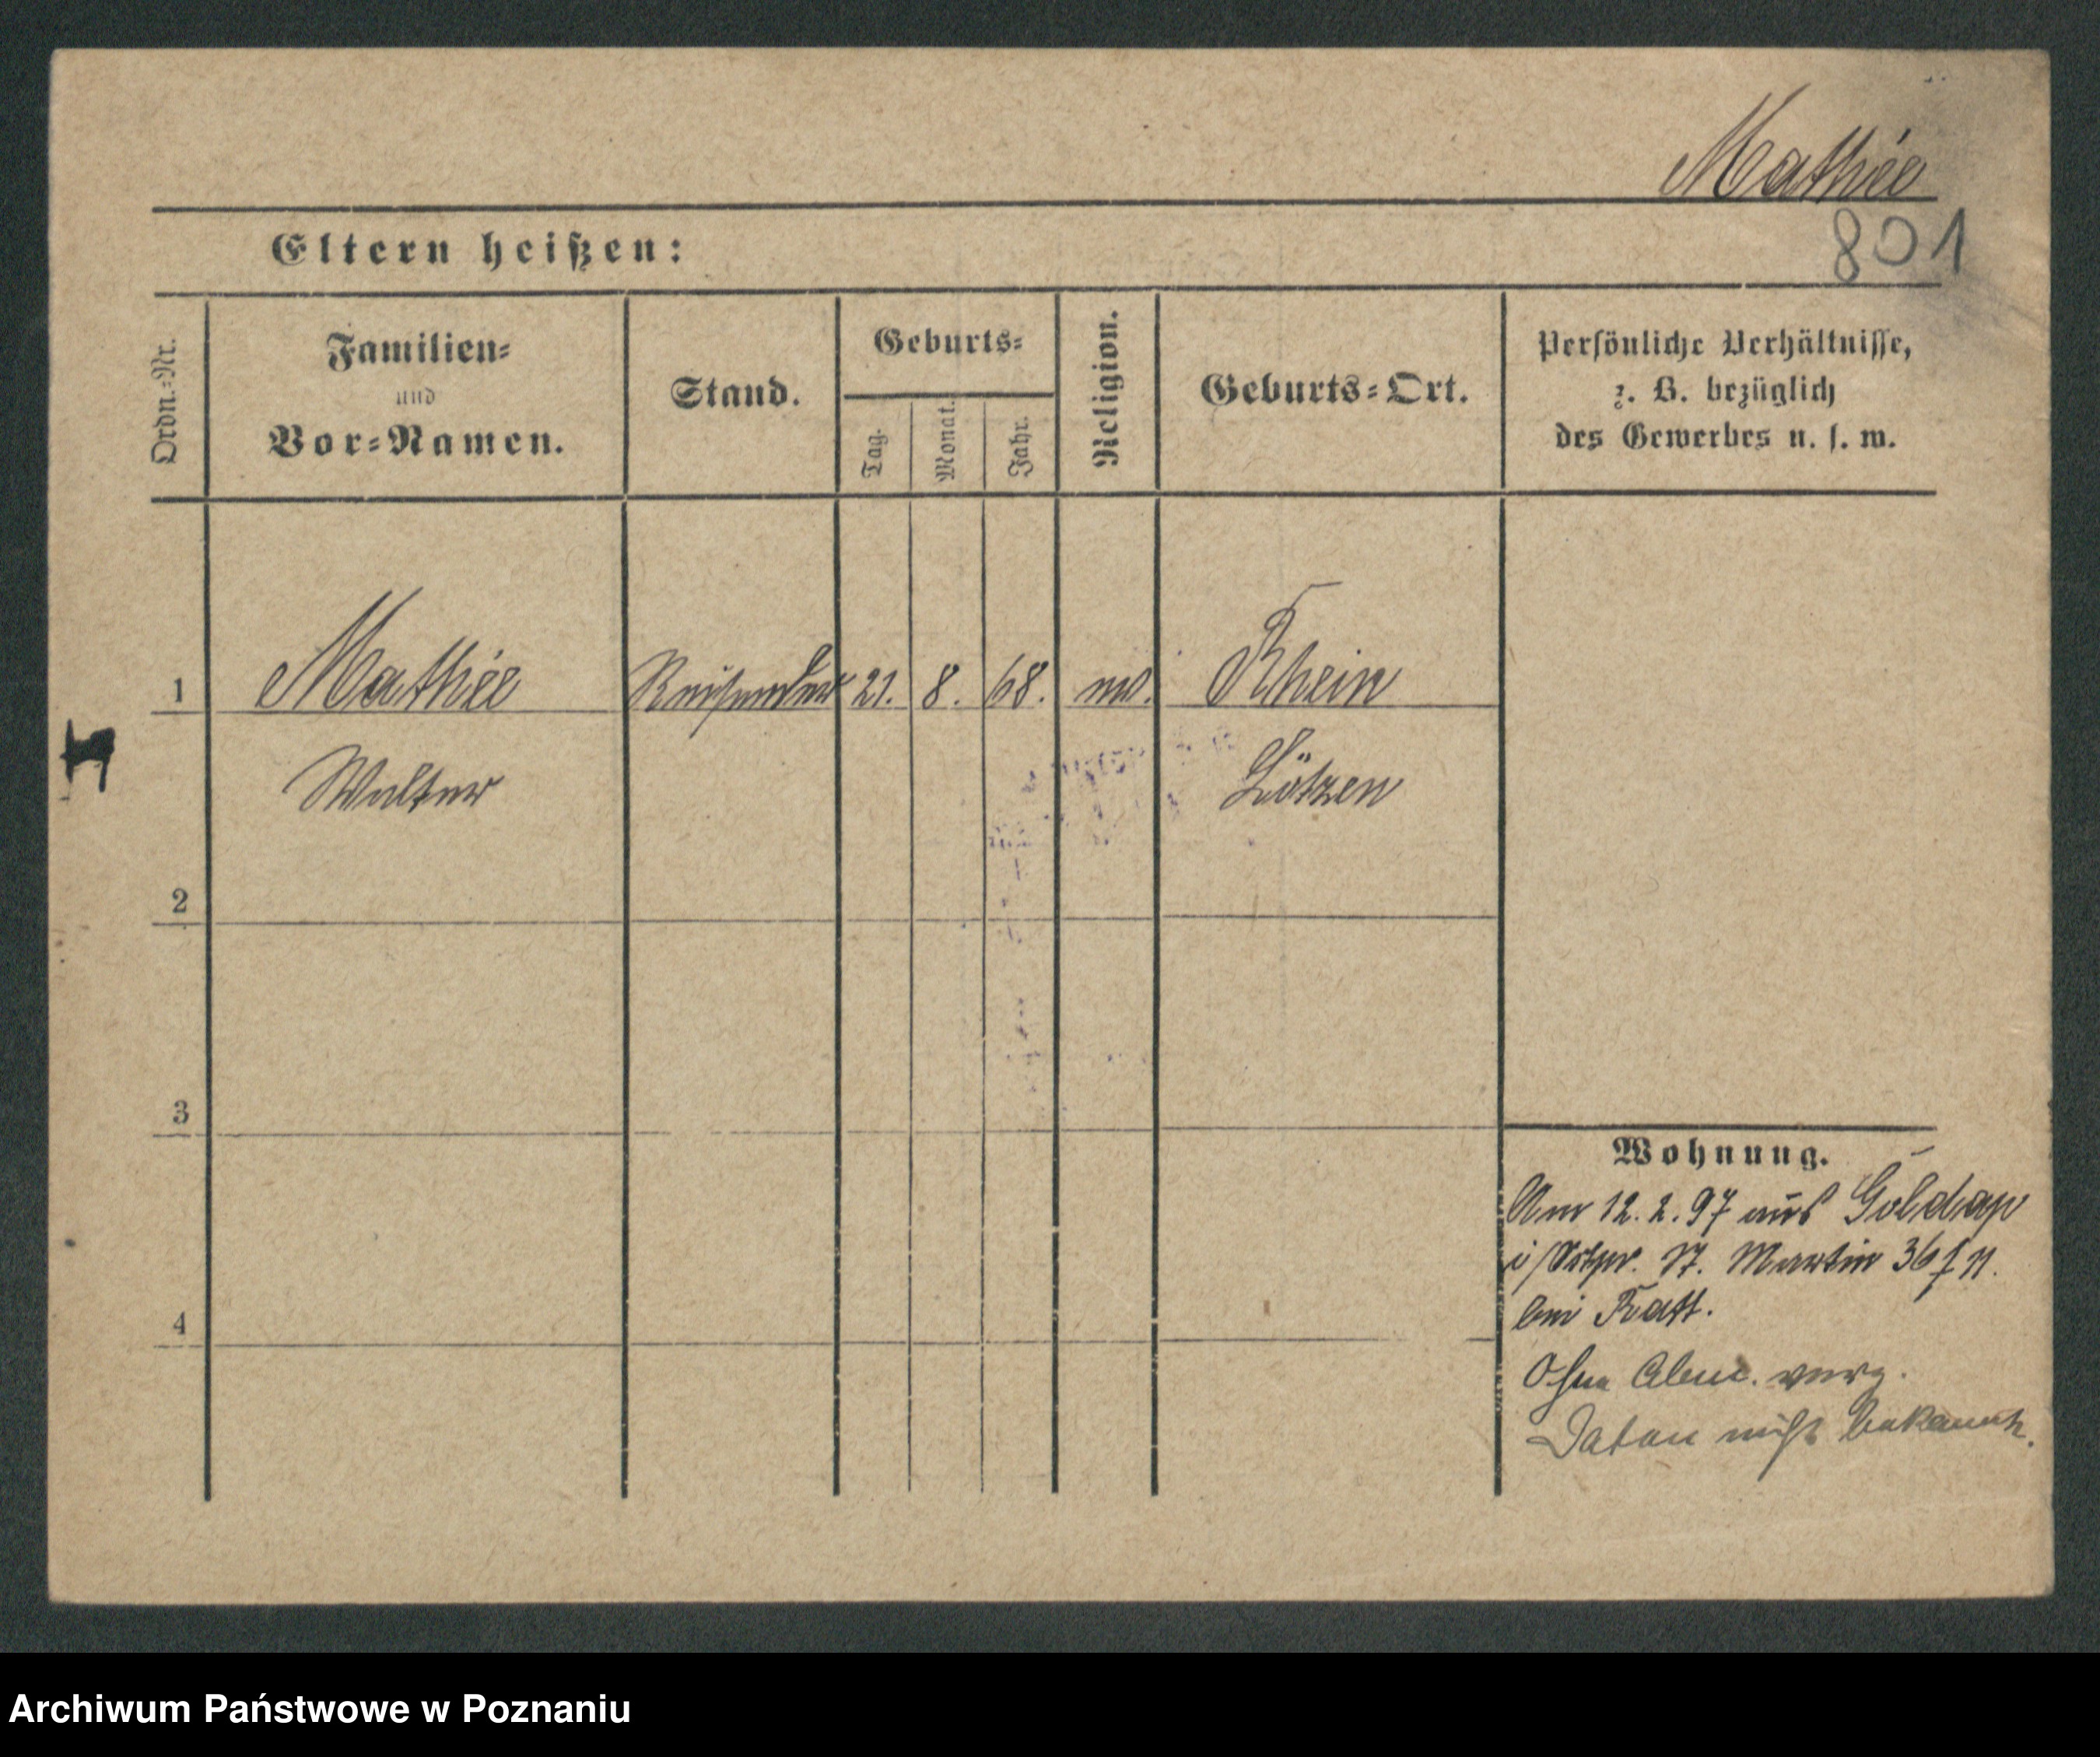 Mathée
801
Eltern heißen:
Ordn.-Nr.
Familien-
und
Vor-Namen.
Stand.
Geburts-
Tag.
Monat.
Jahr.
Religion.
Geburts-Ort.
Persönliche Verhältnisse,
z. B. bezüglich
des Gewerbes u. s. w.
1 Mathée Reisender 21. 8. 68. ev. Rhein
Walter Lötzen
2
3
4
Wohnung.
Am 12.2.97 aus Goldap
i/Ostpr. St. Martin 36 f II.
bei Katt.
Ohne Abm. verz.
Datum nicht bekannt.
Archiwum Państwowe w Poznaniu